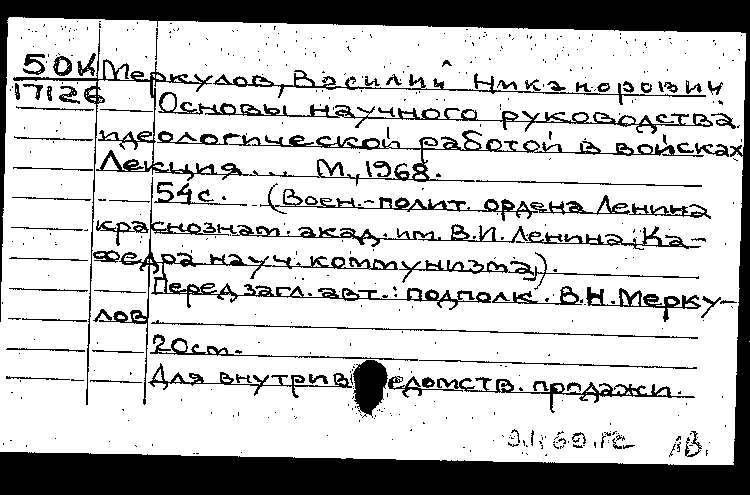 50К Меркулов, Василий Никанорович
17126 Основы научного руководства
идеологической работой в войсках
Лекция... М., 1968.
54с. (Воен.-полит. ордена Ленина
краснознам. акад. им. В.И. Ленина. Ка-
федра науч. коммунизма).
Перед загл. авт.: подполк. В.Н. Мерку-
лов.
20cm.
Для внутриведомств. продажи.